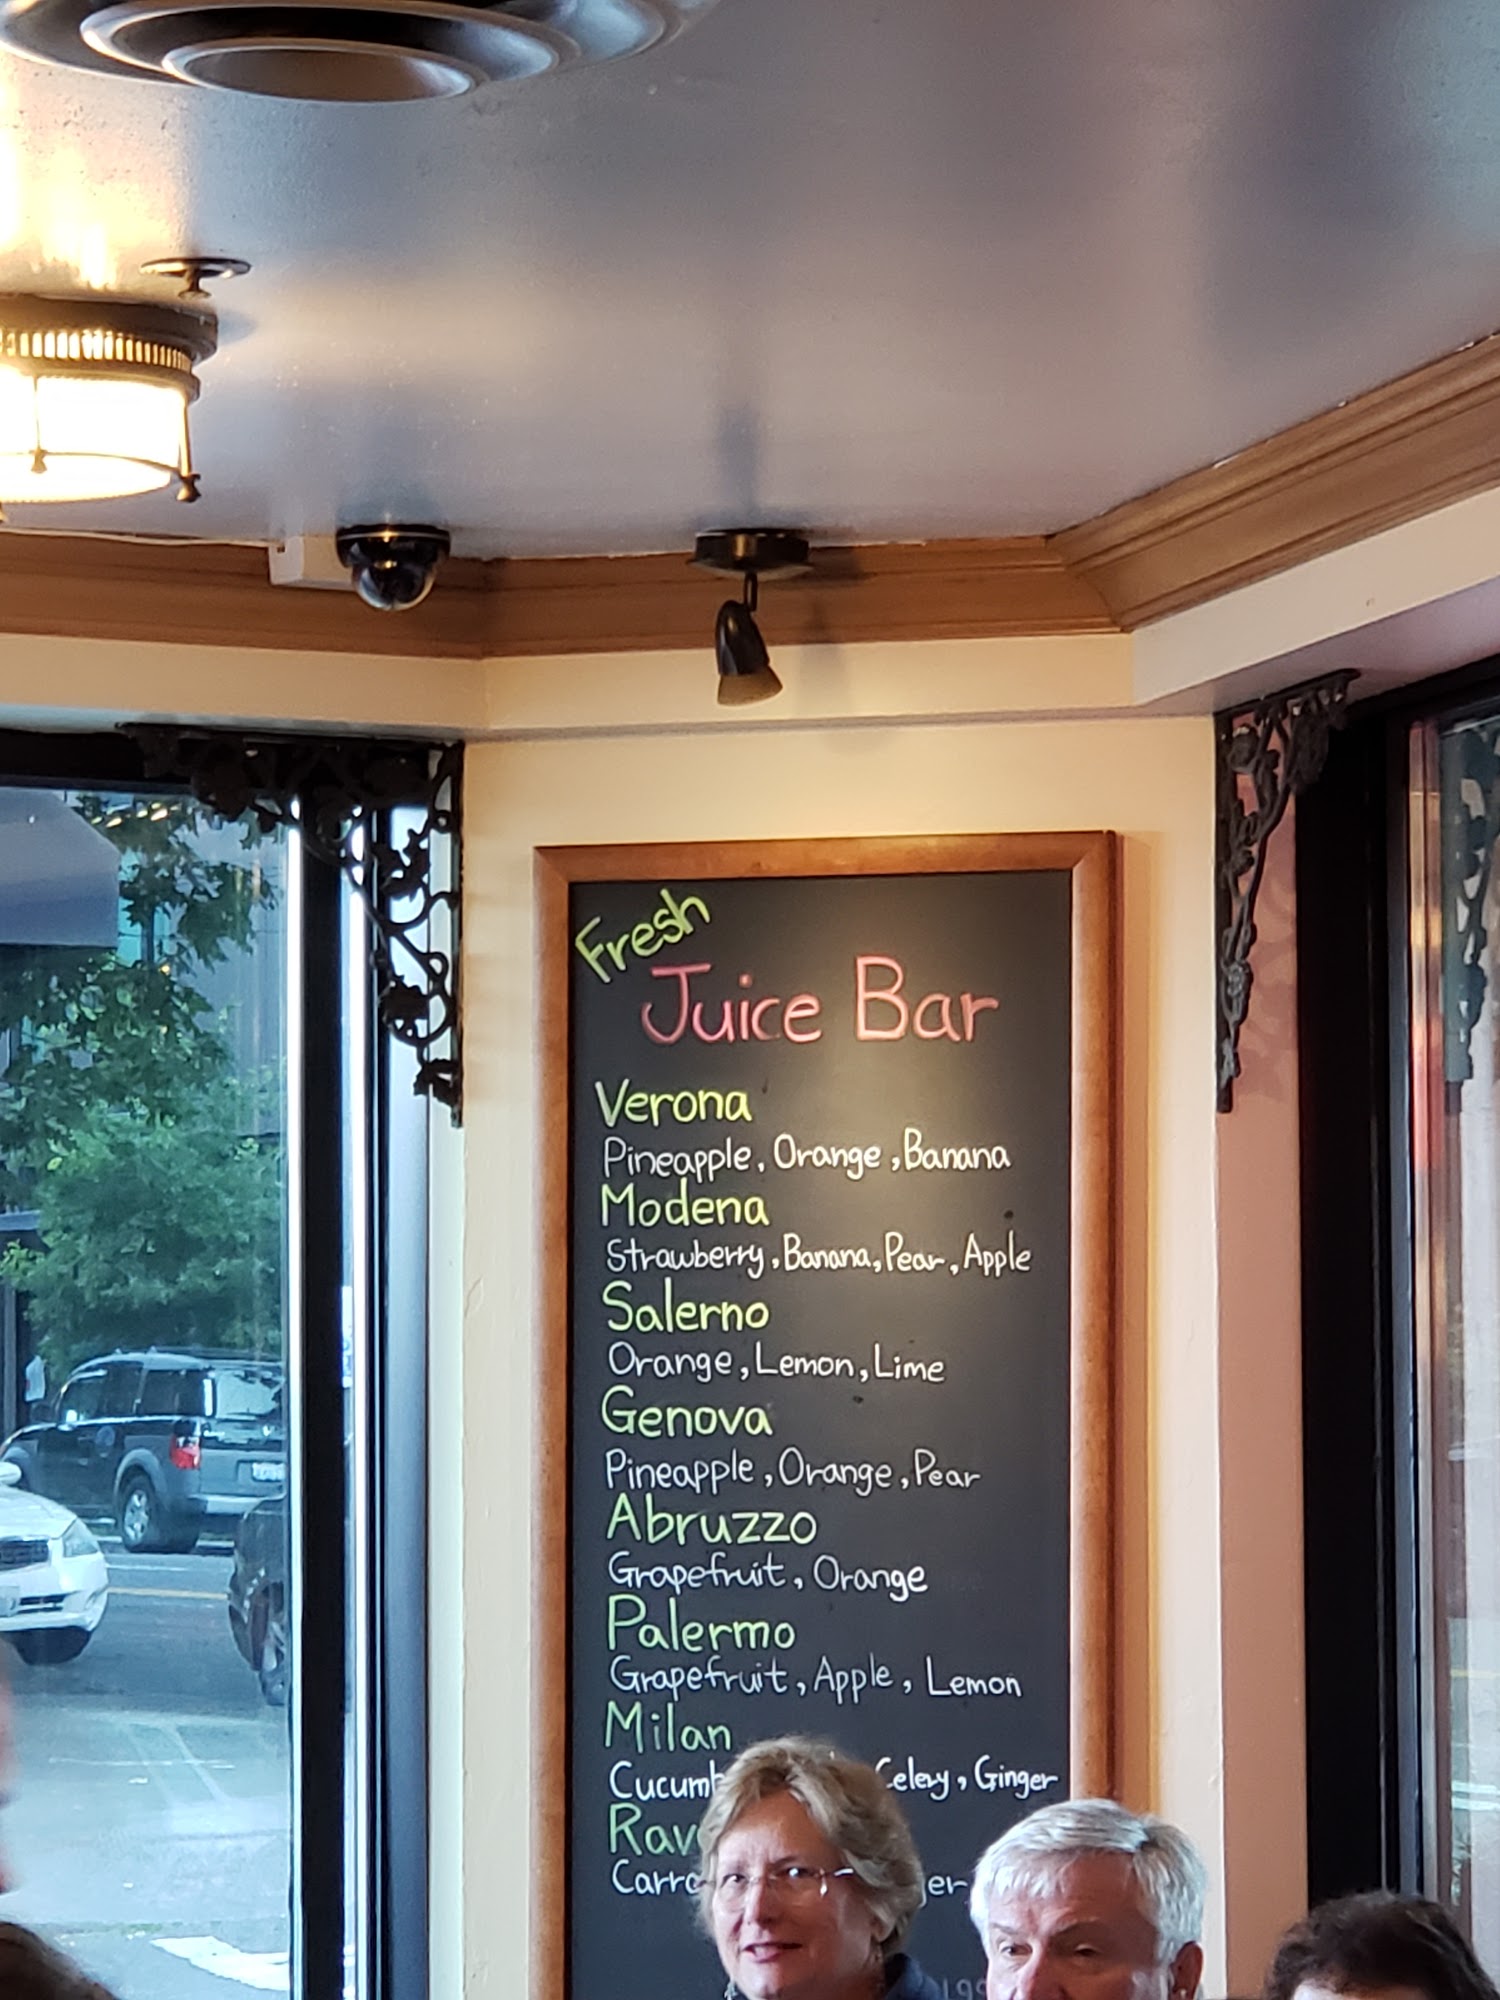 Fresh
Juice Bar
Verona
Pineapple, Orange, Banana
Modena
Strawberry, Banana, Pear, Apple
Salerno
Orange, Lemon, Lime
Genova
Pineapple, Orange, Pear
Abruzzo
Grapefruit, Orange
Palermo
Grapefruit, Apple, Lemon
Milan
Celery, Ginger